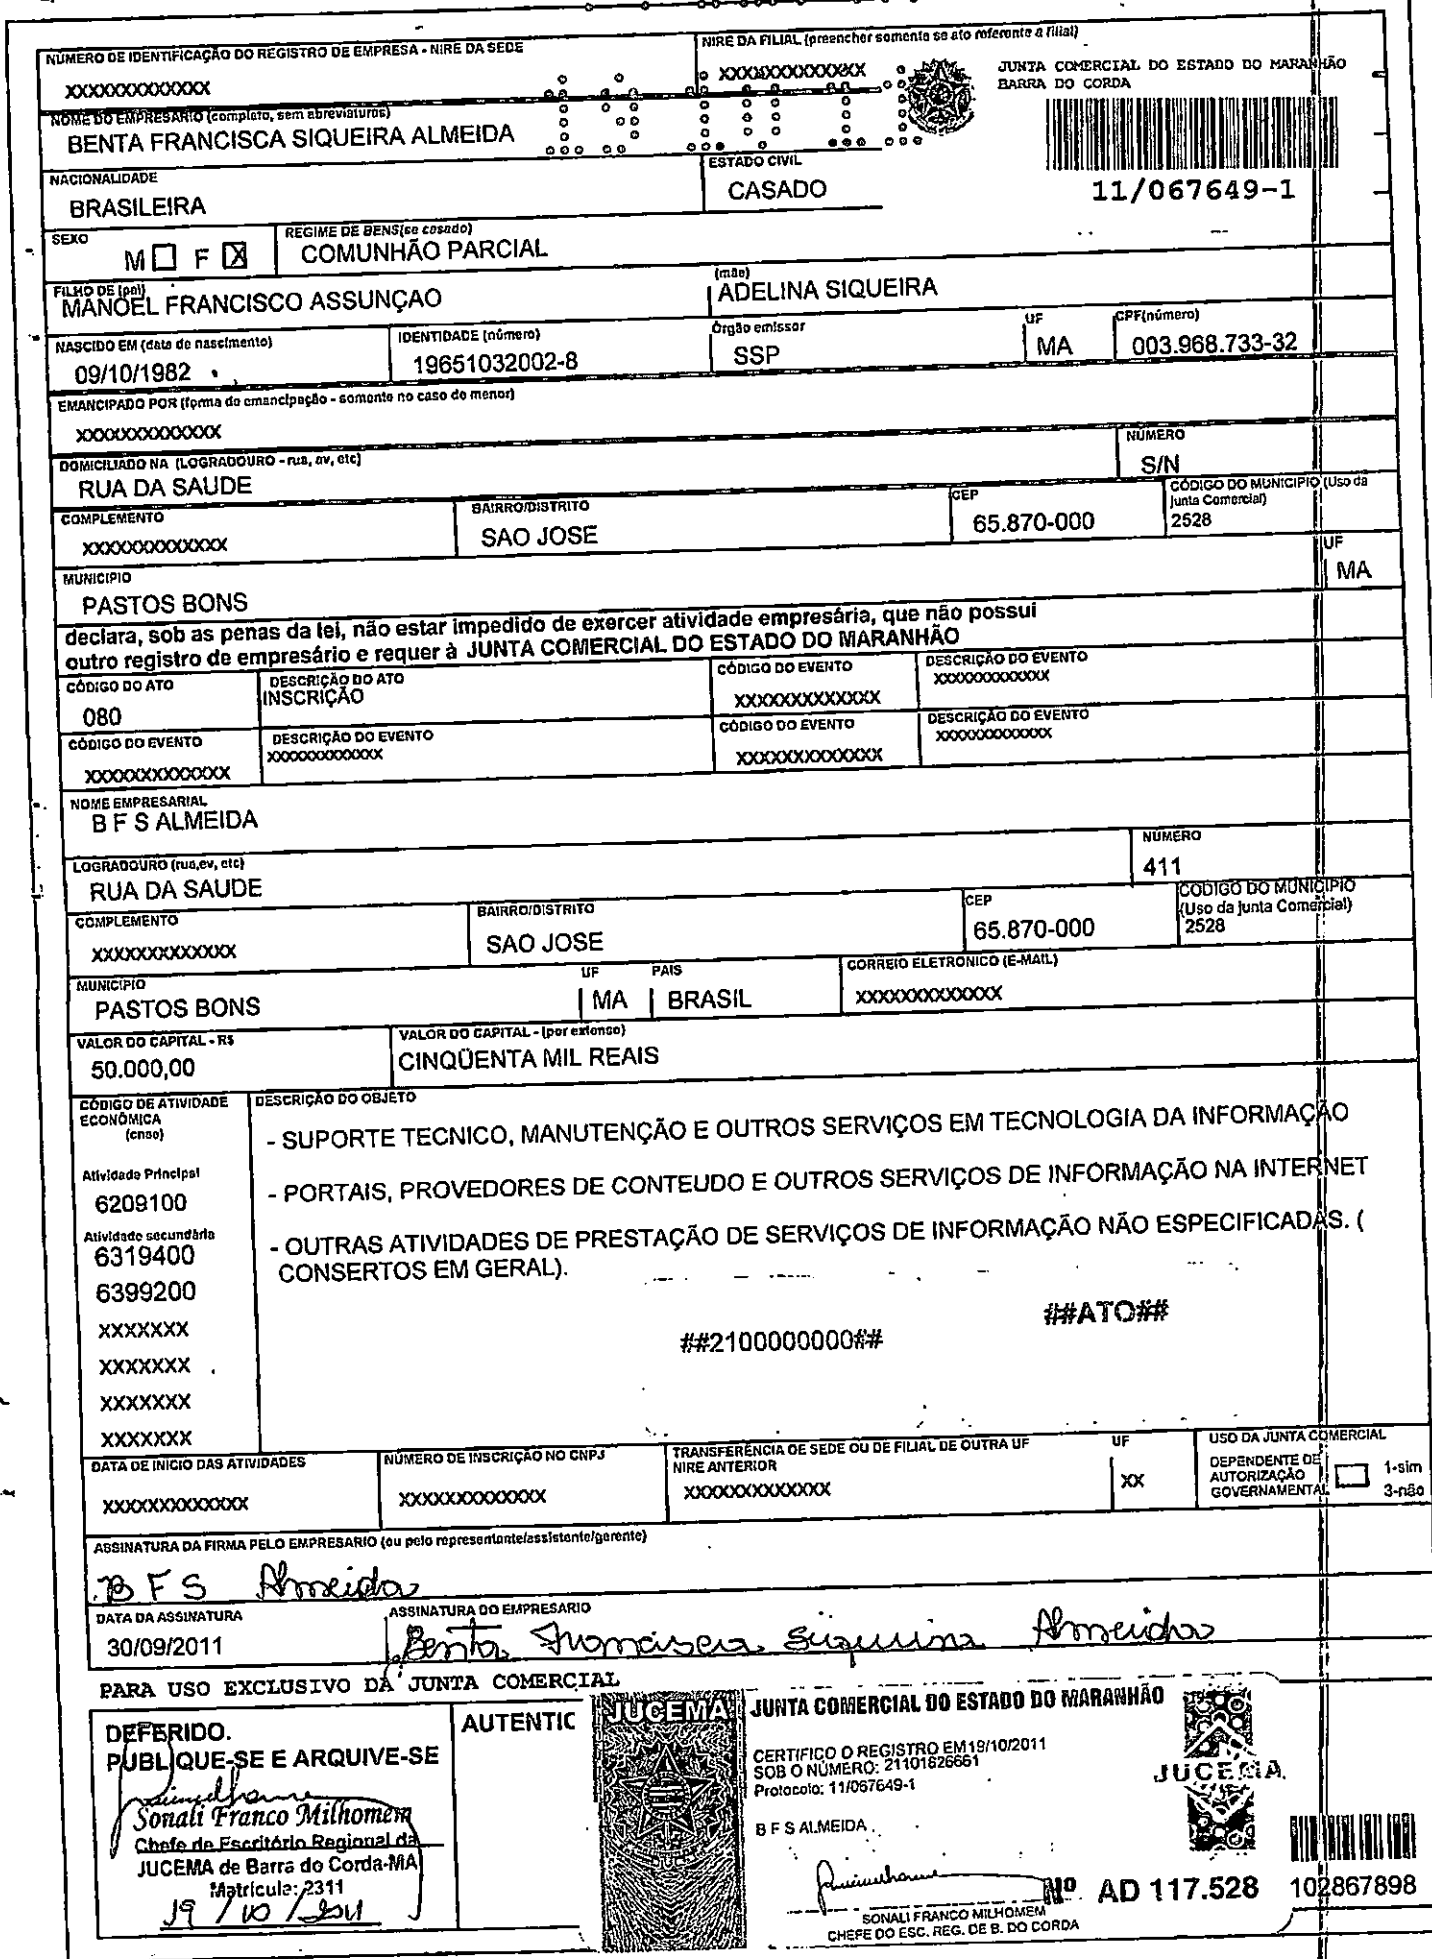 NÚMERO DE IDENTIFICAÇÃO DO REGISTRO DE EMPRESA - NIRE DA SEDE
XXXXXXXXXXXXX
NIRE DA FILIAL (preencher somente se ato referente a filial)
XXXXXXXXXXXXX
JUNTA COMERCIAL DO ESTADO DO MARANHÃO
BARRA DO CORDA
11/067649-1
NOME DO EMPRESÁRIO (completo, sem abreviaturas)
BENTA FRANCISCA SIQUEIRA ALMEIDA
NACIONALIDADE
BRASILEIRA
ESTADO CIVIL
CASADO
SEXO
M F X
REGIME DE BENS(se casado)
COMUNHÃO PARCIAL
FILHO DE (pai)
MANOEL FRANCISCO ASSUNÇAO
(mãe)
ADELINA SIQUEIRA
NASCIDO EM (data de nascimento)
09/10/1982
IDENTIDADE (número)
19651032002-8
Órgão emissor
SSP
UF
MA
CPF(número)
003.968.733-32
EMANCIPADO POR (forma de emancipação - somente no caso de menor)
XXXXXXXXXXXXX
DOMICILIADO NA (LOGRADOURO - rua, av, etc)
RUA DA SAUDE
NÚMERO
S/N
COMPLEMENTO
XXXXXXXXXXXXX
BAIRRO/DISTRITO
SAO JOSE
CEP
65.870-000
CÓDIGO DO MUNICIPIO (Uso da
Junta Comercial)
2528
MUNICIPIO
PASTOS BONS
UF
MA
declara, sob as penas da lei, não estar impedido de exercer atividade empresária, que não possui
outro registro de empresário e requer à JUNTA COMERCIAL DO ESTADO DO MARANHÃO
CÓDIGO DO ATO
080
DESCRIÇÃO DO ATO
INSCRIÇÃO
CÓDIGO DO EVENTO
XXXXXXXXXXXXX
DESCRIÇÃO DO EVENTO
XXXXXXXXXXXXX
CÓDIGO DO EVENTO
XXXXXXXXXXXXX
DESCRIÇÃO DO EVENTO
XXXXXXXXXXXXX
CÓDIGO DO EVENTO
XXXXXXXXXXXXX
DESCRIÇÃO DO EVENTO
XXXXXXXXXXXXX
NOME EMPRESARIAL
B F S ALMEIDA
LOGRADOURO (rua,av, etc)
RUA DA SAUDE
NÚMERO
411
COMPLEMENTO
XXXXXXXXXXXXX
BAIRRO/DISTRITO
SAO JOSE
CEP
65.870-000
CODIGO DO MUNICIPIO
(Uso da Junta Comercial)
2528
MUNICIPIO
PASTOS BONS
UF
MA
PAIS
BRASIL
CORREIO ELETRONICO (E-MAIL)
XXXXXXXXXXXXX
VALOR DO CAPITAL - R$
50.000,00
VALOR DO CAPITAL - (por extenso)
CINQÜENTA MIL REAIS
CÓDIGO DE ATIVIDADE
ECONÔMICA
(cnae)
Atividade Principal
6209100
Atividade secundária
6319400
6399200
XXXXXXX
XXXXXXX
XXXXXXX
XXXXXXX
DESCRIÇÃO DO OBJETO
- SUPORTE TECNICO, MANUTENÇÃO E OUTROS SERVIÇOS EM TECNOLOGIA DA INFORMAÇÃO
- PORTAIS, PROVEDORES DE CONTEUDO E OUTROS SERVIÇOS DE INFORMAÇÃO NA INTERNET
- OUTRAS ATIVIDADES DE PRESTAÇÃO DE SERVIÇOS DE INFORMAÇÃO NÃO ESPECIFICADAS. (
CONSERTOS EM GERAL).
##ATO##
##2100000000##
DATA DE INICIO DAS ATIVIDADES
XXXXXXXXXXXXX
NÚMERO DE INSCRIÇÃO NO CNPJ
XXXXXXXXXXXXX
TRANSFERÊNCIA DE SEDE OU DE FILIAL DE OUTRA UF
NIRE ANTERIOR
XXXXXXXXXXXXX
UF
XX
USO DA JUNTA COMERCIAL
DEPENDENTE DE
AUTORIZAÇÃO
GOVERNAMENTAL
1-sim
3-não
ASSINATURA DA FIRMA PELO EMPRESARIO (ou pelo representante/assistente/gerente)
B F S Almeida
DATA DA ASSINATURA
30/09/2011
ASSINATURA DO EMPRESARIO
Benta Francisca Siqueira Almeida
PARA USO EXCLUSIVO DA JUNTA COMERCIAL
DEFERIDO.
PUBLIQUE-SE E ARQUIVE-SE
Sonali Franco Milhomem
Chefe de Escritório Regional da
JUCEMA de Barra do Corda-MA
Matrícula: 2311
19 / 10 / 2011
AUTENTIC
JUCEMA
JUNTA COMERCIAL DO ESTADO DO MARANHÃO
CERTIFICO O REGISTRO EM 19/10/2011
SOB O NÚMERO: 21101826661
Protocolo: 11/067649-1
B F S ALMEIDA
JUCEMA
Nº AD 117.528
102867898
SONALI FRANCO MILHOMEM
CHEFE DO ESC. REG. DE B. DO CORDA